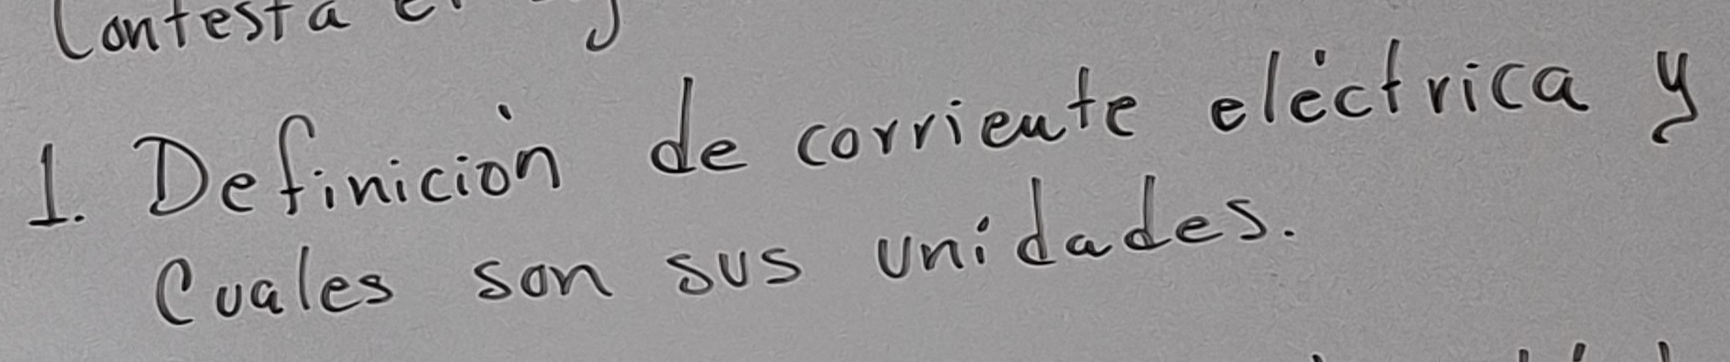 Contesta
1. Definición de corriente eléctrica y
Cuales son sus unidades.